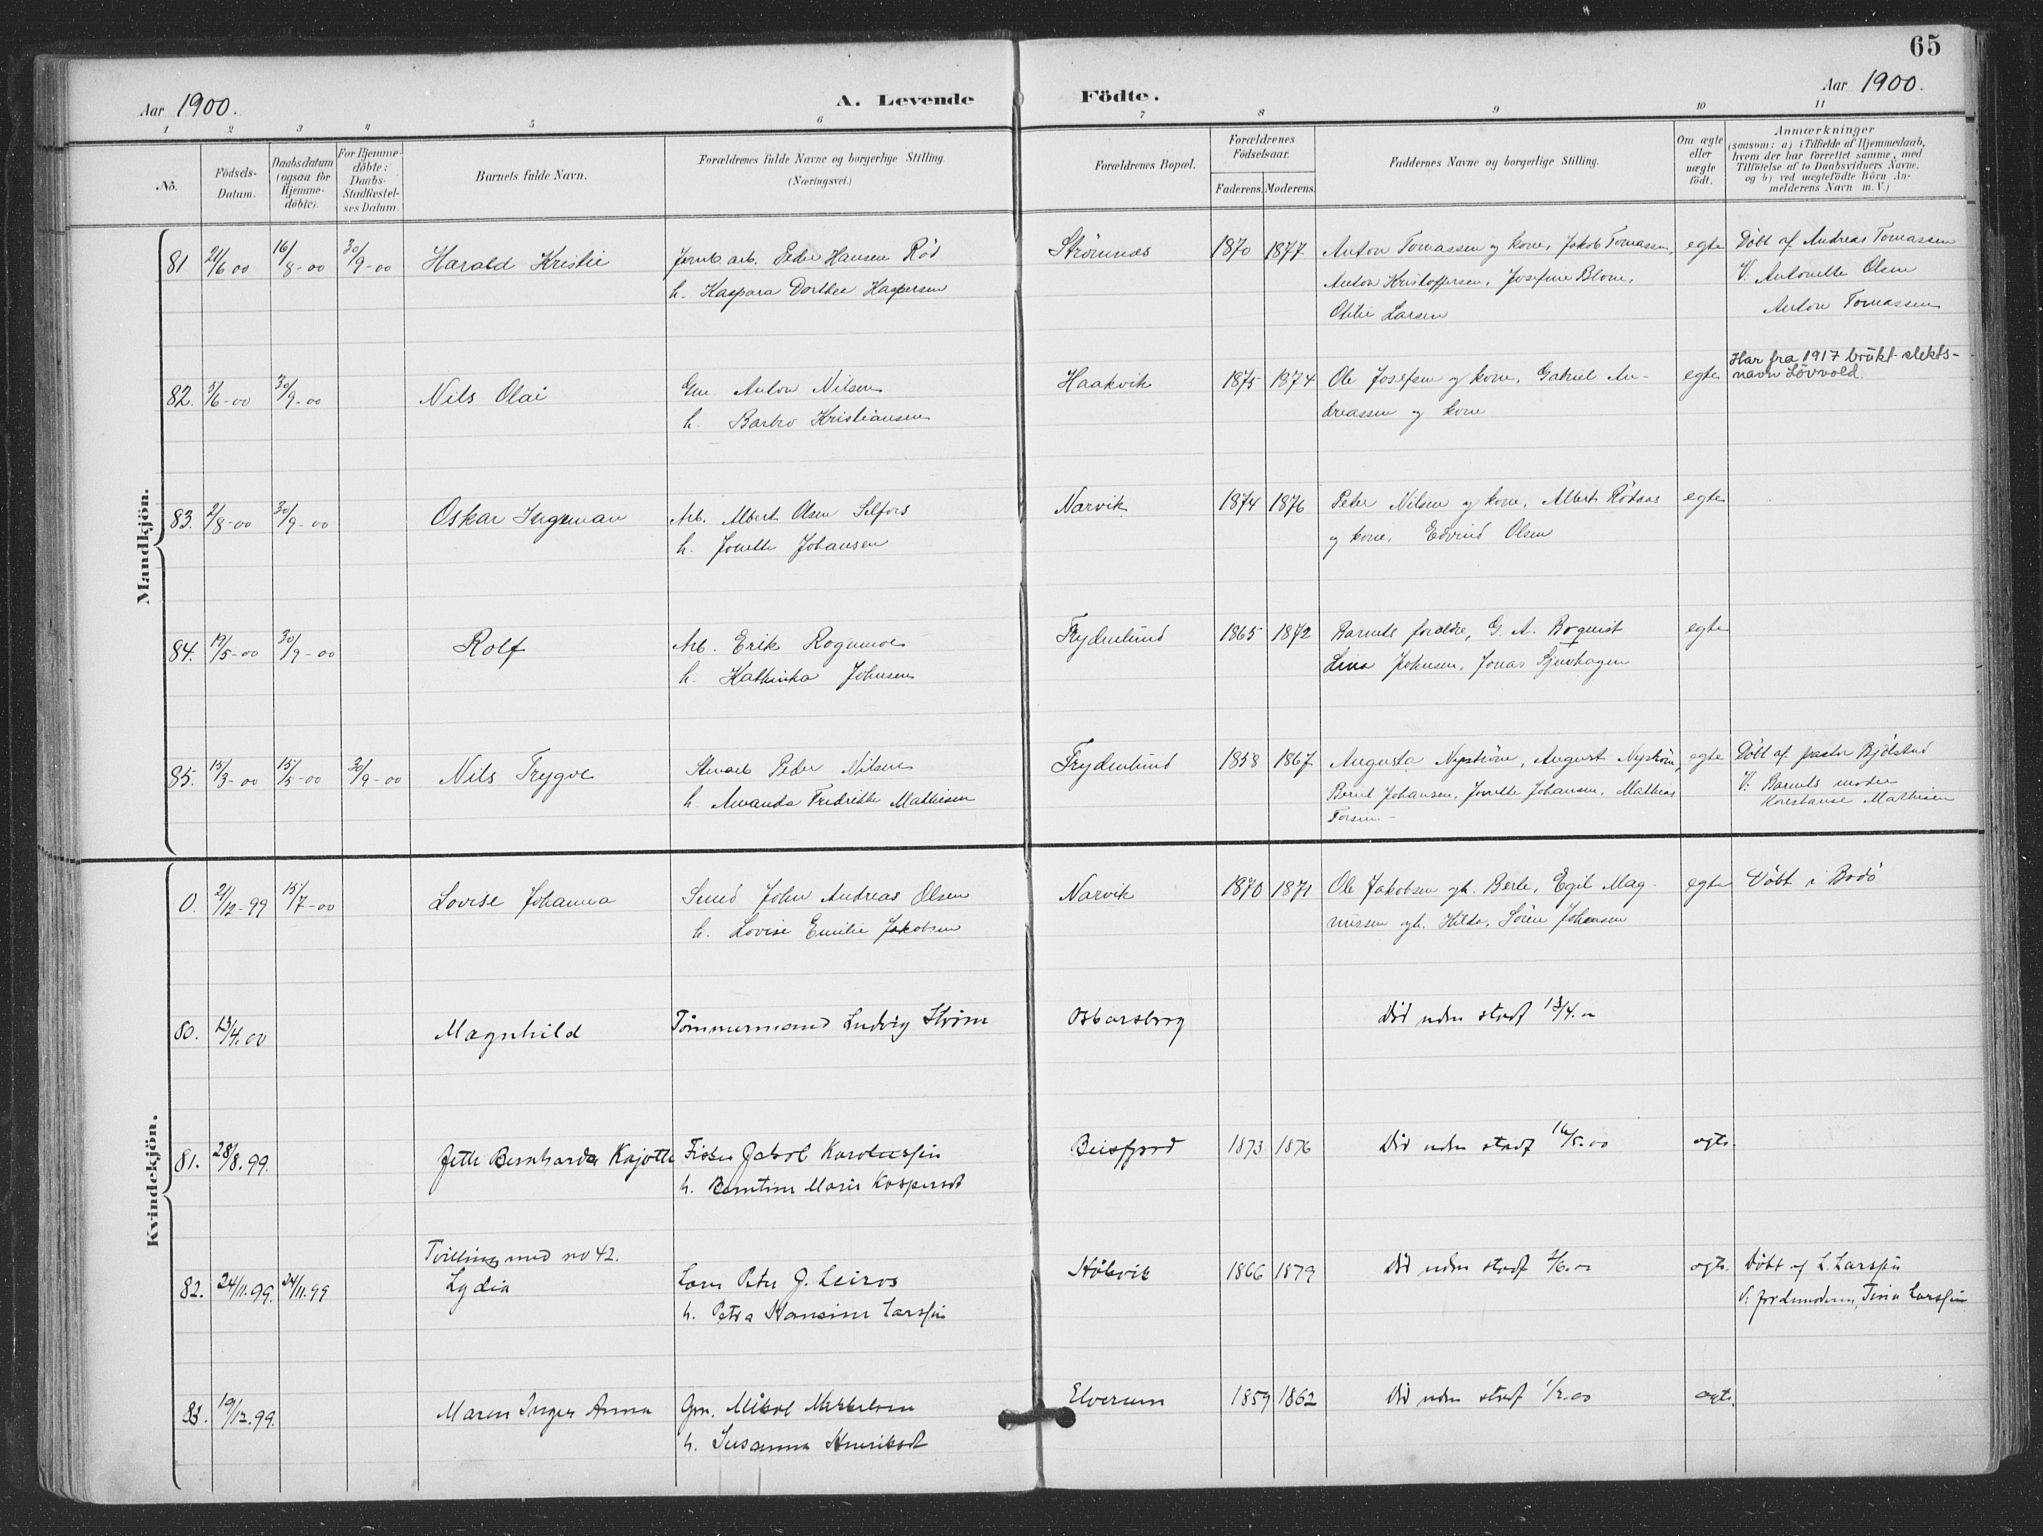 65
Aar 1900.
A. Levende Födte.
Aar 1900.
1 2 3 4 5 6 7 8 9 10 11
No.
Födsels-Datum.
Daabsdatum (ogsaa for Hjemme-döbte).
For Hjemme-döbte: Daabs-Stadfæstel-ses Datum.
Barnets fulde Navn.
Forældrenes fulde Navne og borgerlige Stilling.
(Næringsvei.)
Forældrenes Bopæl.
Forældrenes Födselsaar.
Faderens. Moderens.
Faddernes Navne og borgerlige Stilling.
Om ægte eller uægte födt.
Anmærkninger
(saasom: a) i Tilfælde af Hjemmedaab,
hvem der har forrettet samme, med
Tilföielse af to Daabsvidners Navne.
og b) ved uægtefödte Börn An-
melderens Navn m. V.)
Mandkjön.
81 21/6 00 16/8-00 30/9-00 Harald Kristie Jernb. arb. Peder Hansen Röd Strömnes 1870 1877 Anton Tomassen og kone, Jakob Tomassen, egte Döbt af Andreas Tomassen
h. Kaspara Dorthea Haspersen Anton Kristoffersen, Josefine Blom, V. Antonette Olsen
Otilie Larsen Anton Tomassen
82. 5/6-00 30/9-00 Nils Olai Gm Anton Nilsen Haakvik 1875 1874 Ole Josefsen og kone, Gabriel An- egte Har fra 1917 brukt slekts-
navn Lövvold.
h. Barbro Kristiansen dreassen og kone
83. 2/8-00 30/9-00 Oskar Ingeman Arb. Albert Olsen Selfors Narvik 1874 1876 Peter Nilsen og kone, Albert Rödaas egte
h. Jonette Johansen og kone, Edvind Olsen
84. 19/5-00 30/9-00 Rolf Arb. Erik Rognmoe Frydenlund 1865 1872 Barnets foreldre, G. A. Boquist egte
h. Kathinka Johnsen Lina Johnsen, Jonas Sjuvhagen
85. 15/3-00 15/5-00 30/9-00 Nils Trygve Peder Nilsen Frydenlund 1858 1867 Augusta Nyström, August Nyström, egte Döbt af pastor Bjölstad
h. Amanda Fredrikke Mathisen Bernt Johansen, Jonette Johansen, Mathias V: Barnets moder
Torsen. Konstanse Mathisen
Kvindekjön.
0. 21/12-99 15/7-00 Lovise Johanna Smed John Andreas Olsen Narvik 1870 1871 Ole Jakobsen gh. Berle, Egil Mag- egte Döbt i Bodö
h. Lovise Emilie Jakobsen nussen gh. Hilda, Sören Johansen
80. 13/4.00 Magnhild Tömmermand Ludvig Ström Oskarsborg Död uden stadf 13/4.00
81. 28/8.99. Jette Bernharda Kajotte Fisker Jakob Karoliussen Beisfjord 1873 1876 Död uden stadf 16/5.00 egte.
h. Berntine Marie Kaspersdt
Tvilling med no 42.
82. 24/11.99. 24/11.99 Lydia Lars Peter J. Leiros Håkvik 1866 1879 Död uden stadf egte. Döbt af L. Larssen
h. Petra Hansine Larssen V: jordmoderen, Tina Larssen
83. 19/12.99. Maren Inger Anna Gm. Mikal Mikkelsen Elversum 1859 1862 Död uden stadf 1/2.00 egte.
h. Susanna Henriksdt